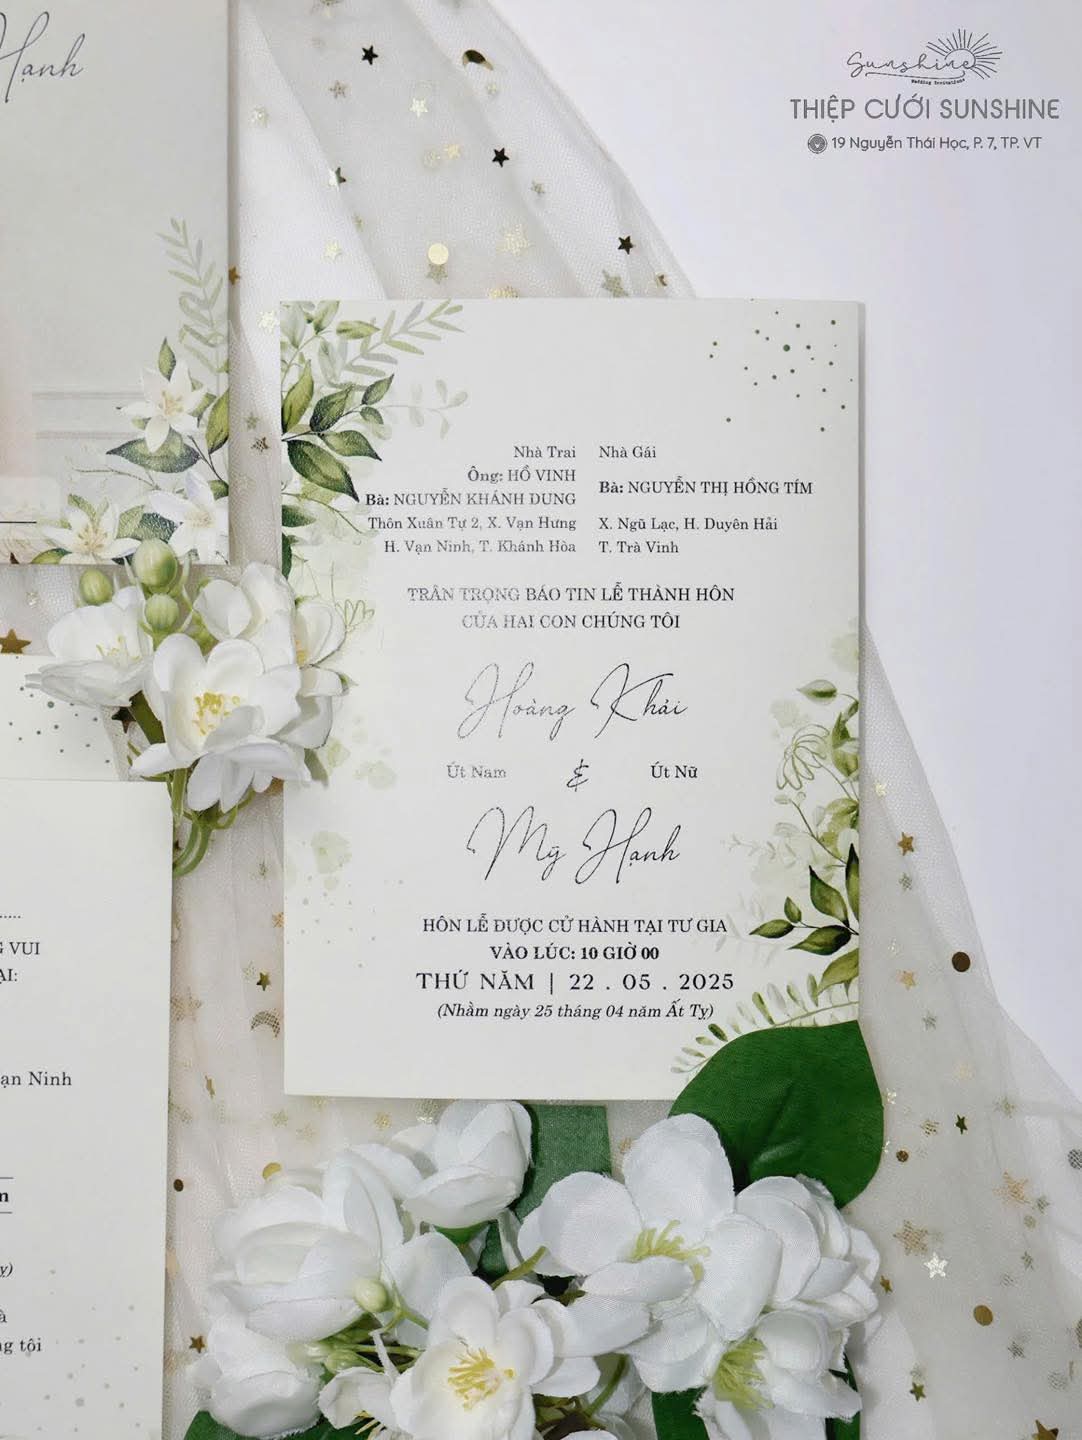 Hạnh
Sunshine
Wedding Invitations
THIỆP CƯỚI SUNSHINE
19 Nguyễn Thái Học, P. 7, TP. VT
Nhà Trai
Ông: HỒ VINH
Bà: NGUYỄN KHÁNH DUNG
Thôn Xuân Tự 2, X. Vạn Hưng
H. Vạn Ninh, T. Khánh Hòa
Nhà Gái
Bà: NGUYỄN THỊ HỒNG TÍM
X. Ngũ Lạc, H. Duyên Hải
T. Trà Vinh
TRÂN TRỌNG BÁO TIN LỄ THÀNH HÔN
CỦA HAI CON CHÚNG TÔI
Hoàng Khải
Út Nam & Út Nữ
Mỹ Hạnh
HÔN LỄ ĐƯỢC CỬ HÀNH TẠI TƯ GIA
VÀO LÚC: 10 GIỜ 00
THỨ NĂM | 22 . 05 . 2025
(Nhằm ngày 25 tháng 04 năm Ất Tỵ)
VUI
Ninh
tôi